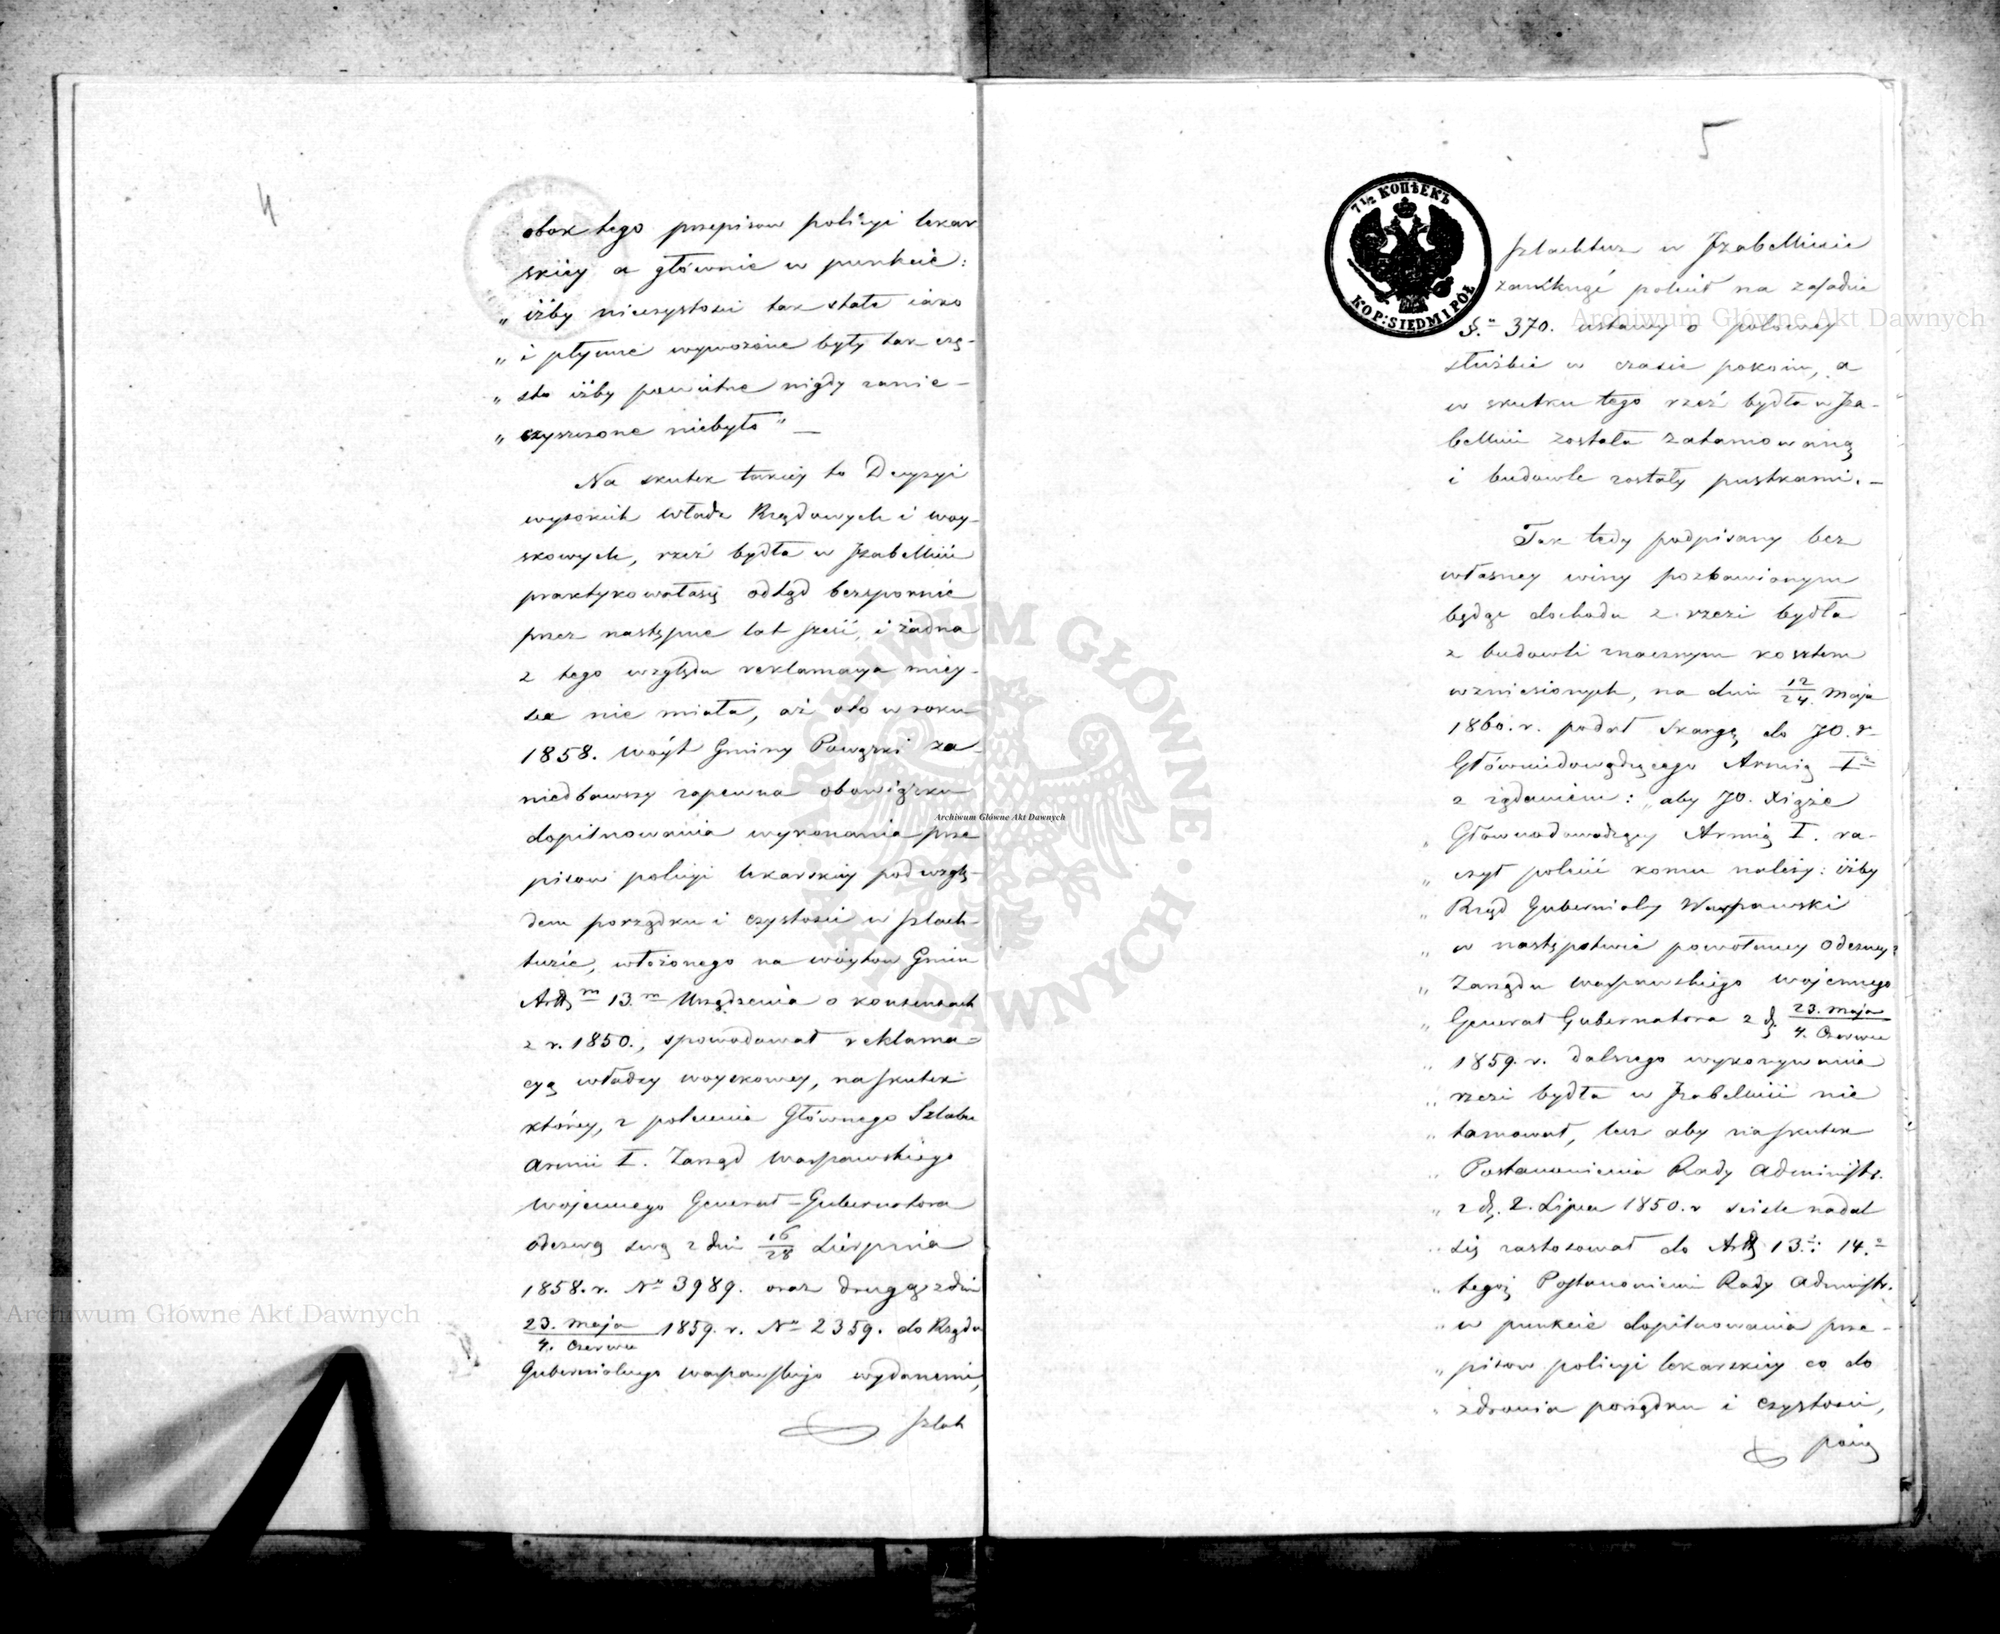 4
obok tego przepisow policyi lekar
skiey a głównie w punkcie:
„ iżby nieczystości tak stałe iako
„ i płynne wywożone były tak czę-
„ sto iżby powietrze nigdy zanie-
„ czyszczone niebyło" —
Na skutek takiey to Decyzyi
wysokich władz Rządowych i woy-
skowych, rzeź bydła w Izabellinie
praktykowałasię odtąd bezspornie
przez następne lat sześć, i żadna
z tego względu reklamacya miey-
sca nie miała, aż oto w roku
1858. Wóyt Gminy Powązki za-
niedbawszy zapewna obowiązku
dopilnowania wykonania prze
pisow policyi lekarskiey pod wzglę-
dem porządku i czystości w szlach-
tuzie, włożonego na wóytow Gmin
Artt m 13. m Urządzenia o konsensach
z r. 1850., spowodował reklama-
cyą władzy woyskowey, na skutek
którey, z polecenia Głównego Sztabu
Armii I. Zarząd Warszawskiego
Wojennego Generał-Gubernatora
odezwą swą z dnia 16/28 Sierpnia
1858. r. No 3989. oraz drugą z dnia
23. Maja / 4. Czerwca 1859. r. No 2359. do Rządu
Gubernialnego Warszawskiego wydanemi,
szlach
5
7 ½ КОПѢЕКЪ
KOP: SIEDM I PÓŁ
szlachtuz w Izabellinie
zamknąć polecił na zasadzie
§. 370. ustawy o polowey
służbie w czasie pokoiu, a
w skutku tego rzeź bydła w Iza-
bellinie została zatamowaną
i budowle zostały pustkami. —
Tak tedy podpisany bez
własney winy pozbawionym
będąc dochodu z rzezi bydła
z budowli znacznym kosztem
wzniesionych, na dniu 12/24. Maja
1860. r. podał skargę do JO.
Głównodowodzącego Armią I
z żądaniem: „ aby JO. Xiąże
„ Głównodowodzący Armią I. ra-
„ czył polecić komu należy: iżby
„ Rząd Gubernialny Warszawski
„ w następstwie powołaney odezwy
„ Zarządu Warszawskiego Wojennego
„ Generał Gubernatora z d. 23. Maja / 4. Czerwca
„ 1859. r. dalszego wykonywania
„ rzezi bydła w Izabellinie nie
„ tamował, lecz aby na skutek
„ Postanowienia Rady Administr.
„ z d. 2. Lipca 1850. r ściśle nadal
„ się zastosował do Artt 13. i 14.
„ tegoż Postanowienia Rady Administr.
„ w punkcie dopilnowania prze-
„ pisow policyi lekarskiey co do
„ zdrowia porządku i czystości,
Archiwum Główne Akt Dawnych
Archiwum Główne Akt Dawnych
Archiwum Główne Akt Dawnych
ARCHIWUM GŁÓWNE AKT DAWNYCH